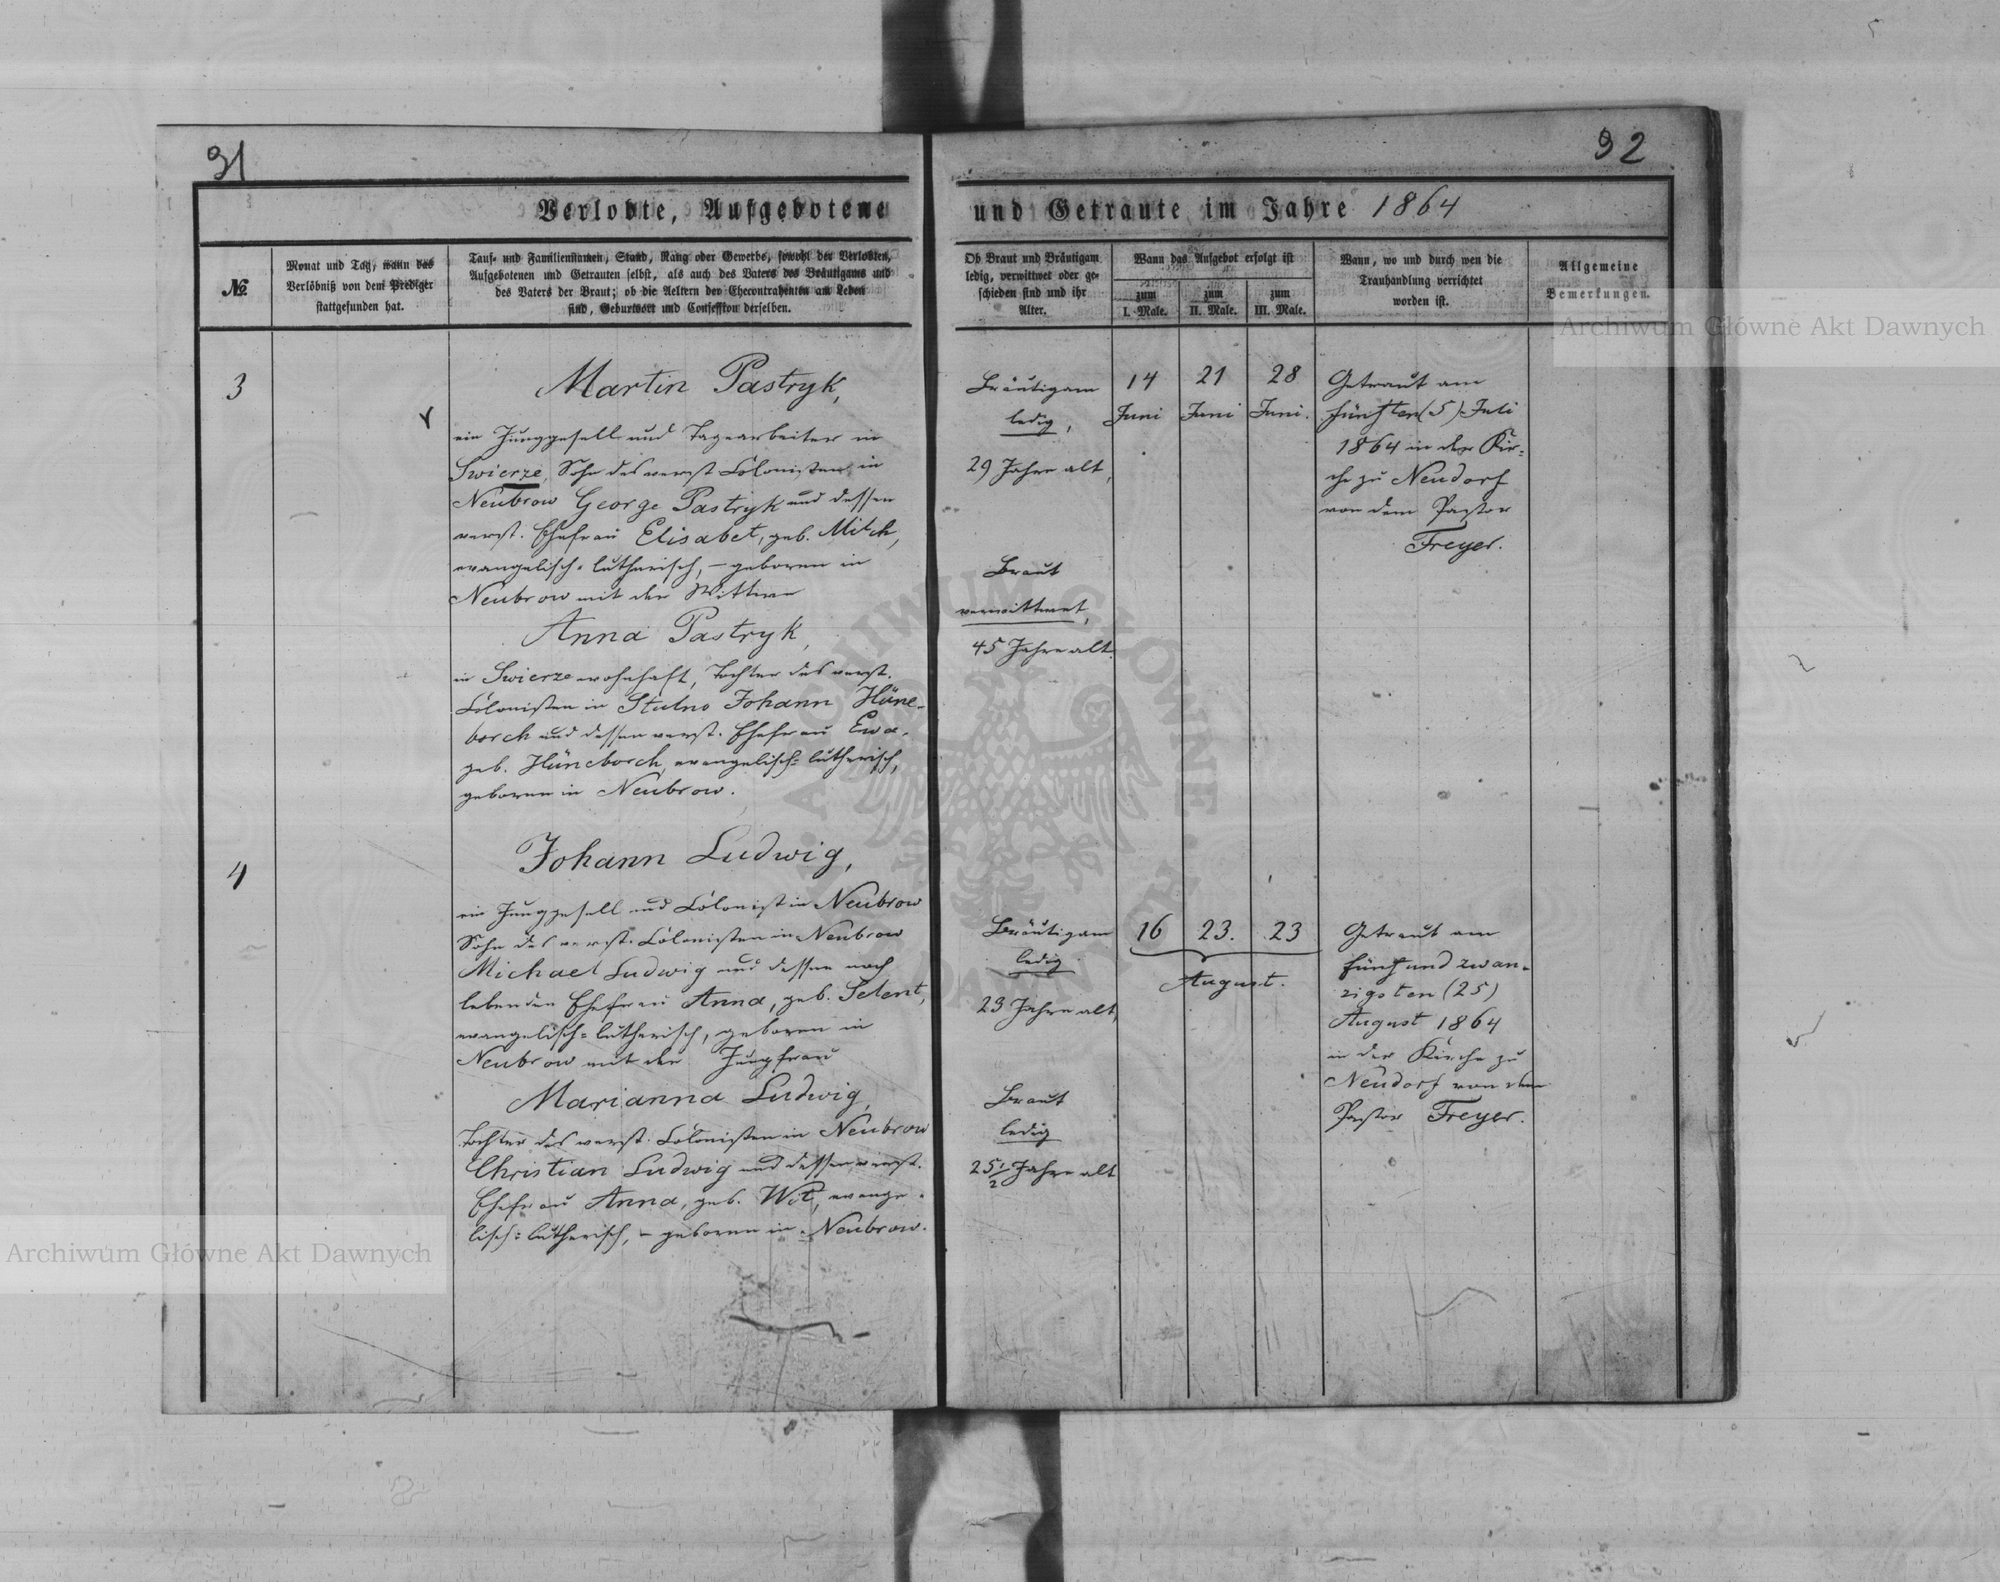 91
92
Verlobte, Aufgebotene
und Getraute im Jahre 1864
№
Monat und Tag, wann das
Verlöbniß von dem Prediger
stattgefunden hat.
Tauf- und Familiennamen, Stand, Rang oder Gewerbe, sowohl der Verlobten,
Aufgebotenen und Getrauten selbst, als auch des Vaters des Bräutigams und
des Vaters der Braut; ob die Aeltern der Ehecontrahenten am Leben
sind, Geburtsort und Confession derselben.
Ob Braut und Bräutigam
ledig, verwittwet oder ge-
schieden sind und ihr
Alter.
Wann das Aufgebot erfolgt ist
zum
I. Male.
zum
II. Male.
zum
III. Male.
Wann, wo und durch wen die
Trauhandlung verrichtet
worden ist.
Allgemeine
Bemerkungen.
3
Martin Pastryk,
ein Junggesell und Tagearbeiter in
Swierze, Sohn des verst. Colonisten in
Neubrow George Pastryk und dessen
verst. Ehefrau Elisabet, geb. Mitch,
evangelisch-lutherisch, – geboren in
Neubrow mit der Wittwe
Anna Pastryk,
in Swierze wohnhaft, Tochter des verst.
Colonisten in Stulno Johann Hüne-
borch und dessen verst. Ehefrau Ewa,
geb. Hüneborch, evangelisch-lutherisch,
geboren in Neubrow.
Bräutigam
ledig,
29 Jahre alt,
Braut
verwittwet,
45 Jahre alt.
14
Juni
21
Juni
28
Juni.
Getraut am
fünften (5) Juli
1864 in der Kir-
che zu Neudorf
von dem Pastor
Freyer.
4
Johann Ludwig,
ein Junggesell und Colonist in Neubrow
Sohn des verst. Colonisten in Neubrow
Michael Ludwig und dessen noch
lebenden Ehefrau Anna, geb. Selent,
evangelisch-lutherisch, geboren in
Neubrow mit der Jungfrau
Marianna Ludwig,
Tochter des verst. Colonisten in Neubrow
Christian Ludwig und dessen verst.
Ehefrau Anna, geb. Wit, evange-
lisch-lutherisch, – geboren in Neubrow.
Bräutigam
ledig
23 Jahre alt,
Braut
ledig
25 1/2 Jahre alt
16
23.
23
August.
Getraut am
fünf und zwan-
zigsten (25)
August 1864
in der Kirche zu
Neudorf von dem
Pastor Freyer.
Archiwum Główne Akt Dawnych
Archiwum Główne Akt Dawnych
ARCHIWUM GŁÓWNE AKT DAWNYCH